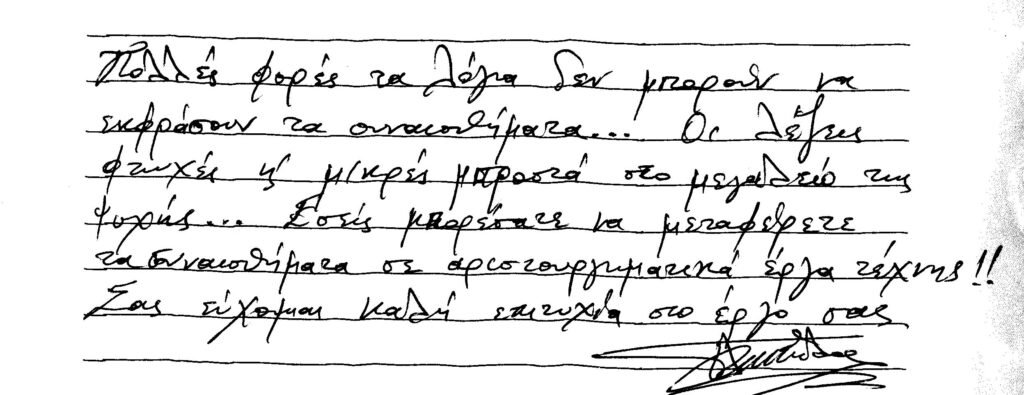 Πολλές φορές τα λόγια δεν μπορούν να
εκφράσουν τα συναισθήματα... Οι λέξεις
φτωχές κ' μικρές μπροστά στο μεγαλείο της
ψυχής... Εσείς μπορέσατε να μεταφέρετε
τα συναισθήματα σε αριστουργηματικά έργα τέχνης!!
Σας εύχομαι καλή επιτυχία στο έργο σας